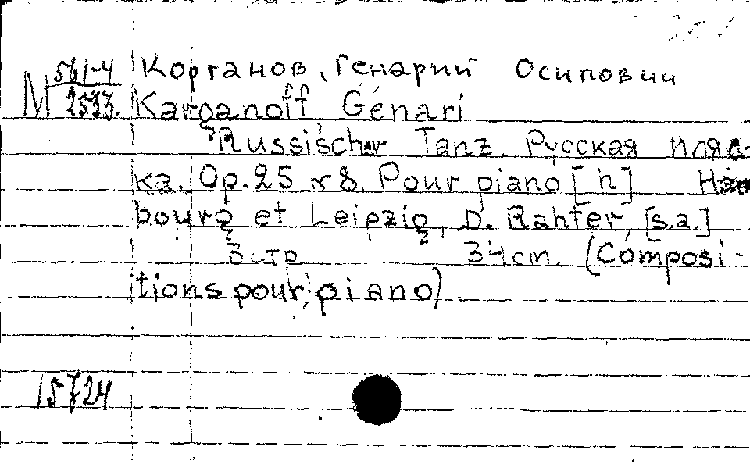 Корганов, Генарий Осипович
М 561-4
2573.
Karganoff Génari
Russischer Tanz. Русская пляс-
ка. Op. 25 № 8. Pour piano [h] Ham-
bourg et Leipzig, D. Rahter, [s.a.]
3 стр 34 cm. (Composi-
itions pour piano)
15724